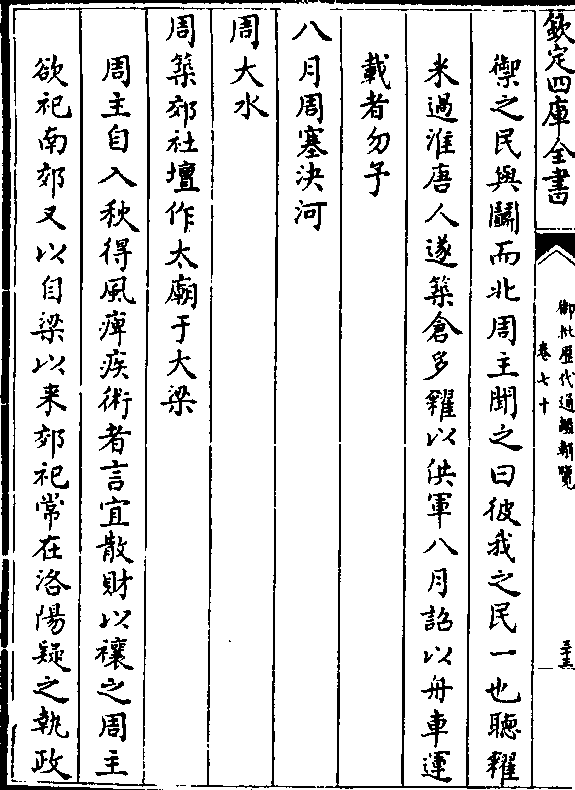 欽定四庫全書
御批歷代通鑑輯覽
卷七十
三十三
禦之民與鬬而北周主聞之曰彼我之民一也聽糴
米過淮唐人遂築倉多糴以供軍八月詔以舟車運
載者勿予
八月周塞決河
周大水
周築郊社壇作太廟于大梁
周主自入秋得風痺疾術者言宜散財以禳之周主
欲祀南郊又以自梁以来郊祀常在洛陽疑之執政